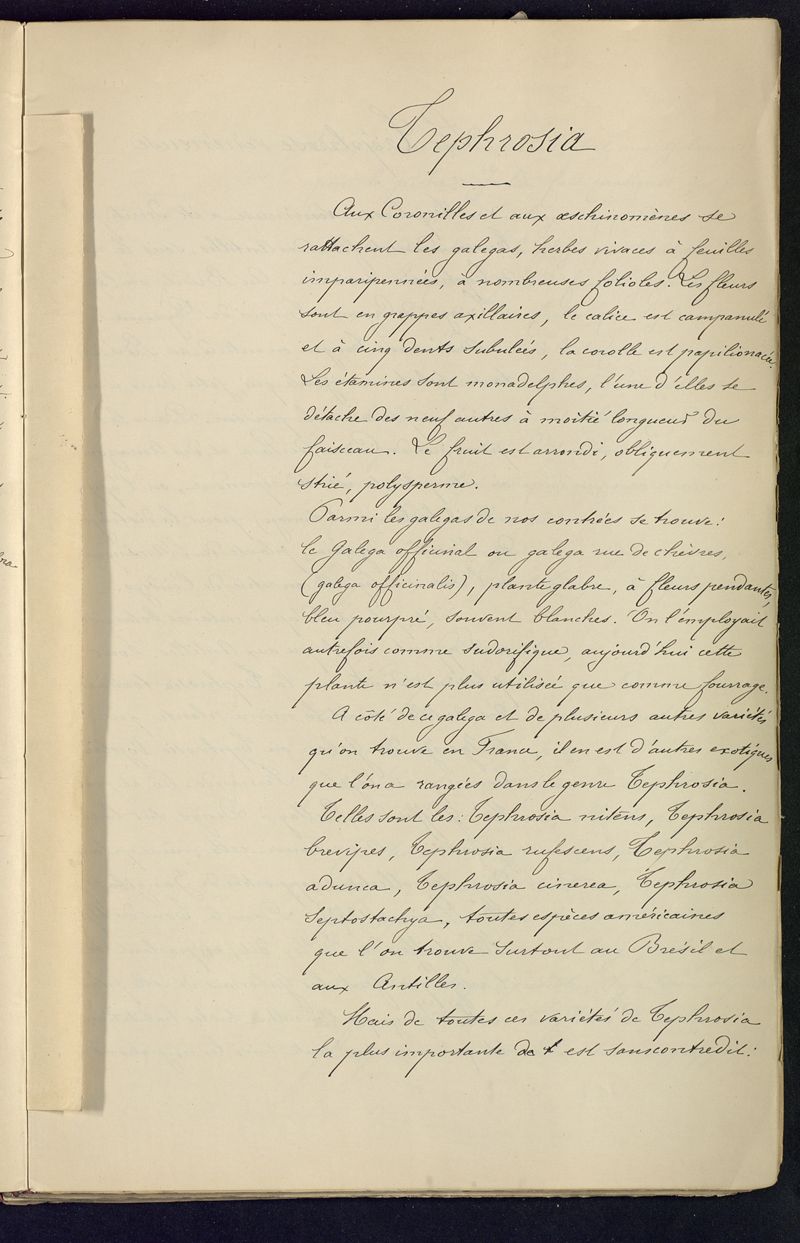 Tephrosia
Aux Coronilles et aux æschinomènes se
rattachent les galegas, herbes vivaces à feuilles
imparipennées, à nombreuses folioles. Les fleurs
sont en grappes axillaires, le calice est campanulé
et à cinq dents subulées, la corolle est papilionacée.
Les étamines sont monadelphes, l'une d'elles se
détache des neuf autres à moitié longueur du
faisceau. Le fruit est arrondi, obliquement
strié, polysperme.
Parmi les galegas de nos contrées se trouve:
le Galega officinal ou galega rue de chèvres,
(galega officinalis), plante glabre, à fleurs pendantes,
bleu pourpré, souvent blanches. On l'employait
autrefois comme sudorifique, aujourd'hui cette
plante n'est plus utilisée que comme fourrage.
A côté de ce galega et de plusieurs autres variétés
qu'on trouve en France, il en est d'autres exotiques
que l'on a rangées dans le genre Tephrosia.
Telles sont les: Tephrosia nitens, Tephrosia
brevipes, Tephrosia rufescens, Tephrosia
adunca, Tephrosia cinerea, Tephrosia
Leptostachya, toutes espèces américaines
que l'on trouve surtout au Brésil et
aux Antilles.
Mais de toutes ces variétés de Tephrosia
la plus importante de est sans contredit: